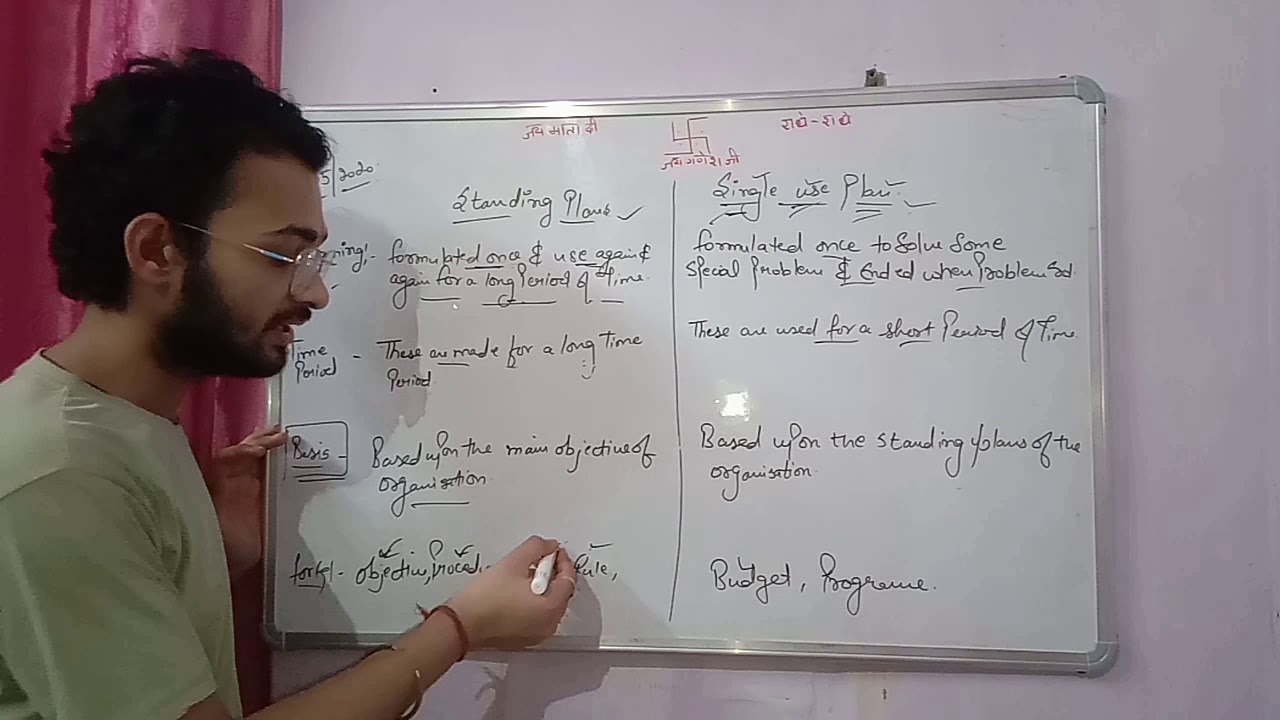 जय माता दी
राधे-राधे
जय गणेश जी
5/2020
Standing Plans
Single use Plan
ning:- formulated once & use again &
again for a long Period of Time.
formulated once to Solve Some
Special Problem & Ended when Problem
Time Period - These are made for a long Time
Period.
These are used for a short Period of Time
Basis - Based upon the main objective of
organisation.
Based upon the standing plans of the
organisation.
objective, Proced Rule,
Budget, Programe.